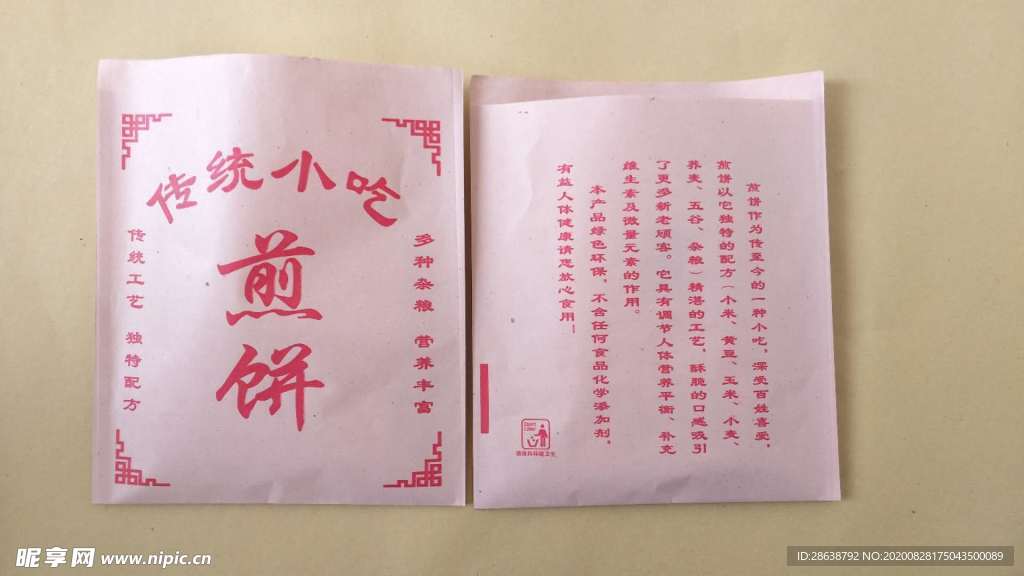 传统小吃
煎饼
传统工艺 独特配方
多种杂粮 营养丰富
煎饼作为传至今的一种小吃，深受百姓喜爱，
煎饼以它独特的配方（小米、黄豆、玉米、小麦、
荞麦、五谷、杂粮）精湛的工艺，酥脆的口感吸引
了更多新老顾客。它具有调节人体营养平衡、补充
维生素及微量元素的作用。
本产品绿色环保，不含任何食品化学添加剂，
有益人体健康请您放心食用！
昵享网 www.nipic.cn
ID:28638792 NO:20200828175043500089